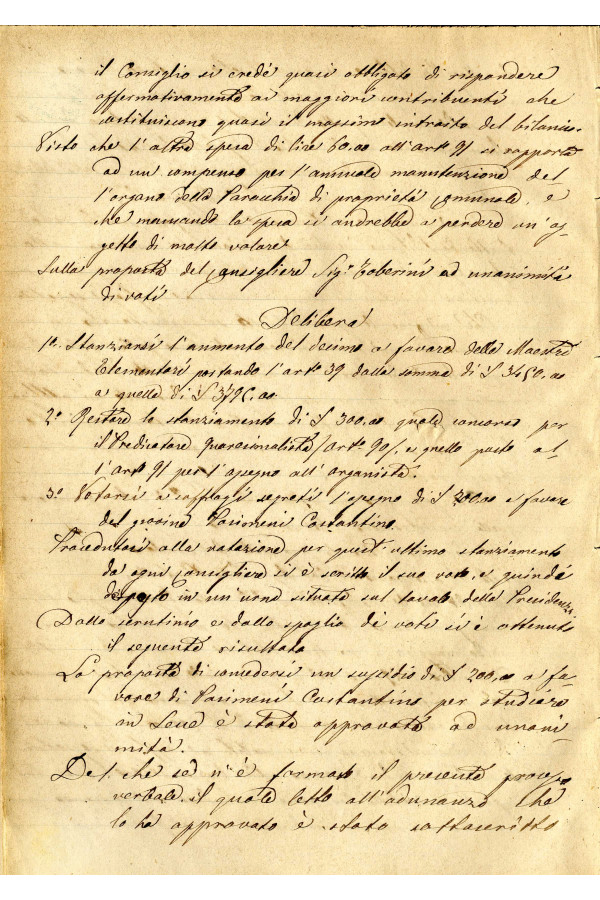 il Consiglio si crede quasi obbligato di rispondere
affermativamente ai maggiori contribuenti che
costituiscono quasi il massimo introito del bilancio.
Visto che l'altra spesa di lire 60.00 all'art.º 91 si rapporta
ad un compenso per l'annuale manutenzione del-
l'organo della Parocchia di proprietà comunale, e
che mancando la spesa si andrebbe a perdere un'og-
getto di molto valore
Sulla proposta del Consigliere Sig.r Toberini ad unanimità
di voti
Delibera
1º. Stanziarsi l'aumento del decimo a favore delle Maestre
Elementari portando l'artº 39 dalla somma di £ 3450,00
a quella di £ 3795.00
2º Restare lo stanziamento di £ 300,00 quale concorso per
il Predicatore Quaresimalista (artº. 90), e quello posto al-
l'artº 91 per l'assegno all'organista.
3º Votarsi a suffragi segreti l'assegno di £ 200,00 a favore
del giovine Parimeni Costantino.
Procedutasi alla votazione per quest'ultimo stanziamento
da ogni Consigliere si è scritto il suo voto, e quindi
deposto in un'urna situata sul tavolo della Presidenza
Dallo scrutinio e dallo spoglio de voti si è ottenuto
il seguente risultato
La proposta di concedersi un sussidio di £ 200,00 a fa-
vore di Parimeni Costantino per studiare
in Lecce è stata approvata ad unani-
mità.
Del che se n'è formato il presente processo
verbale il quale letto all'adunanza che
lo ha approvato è stato sottoscritto